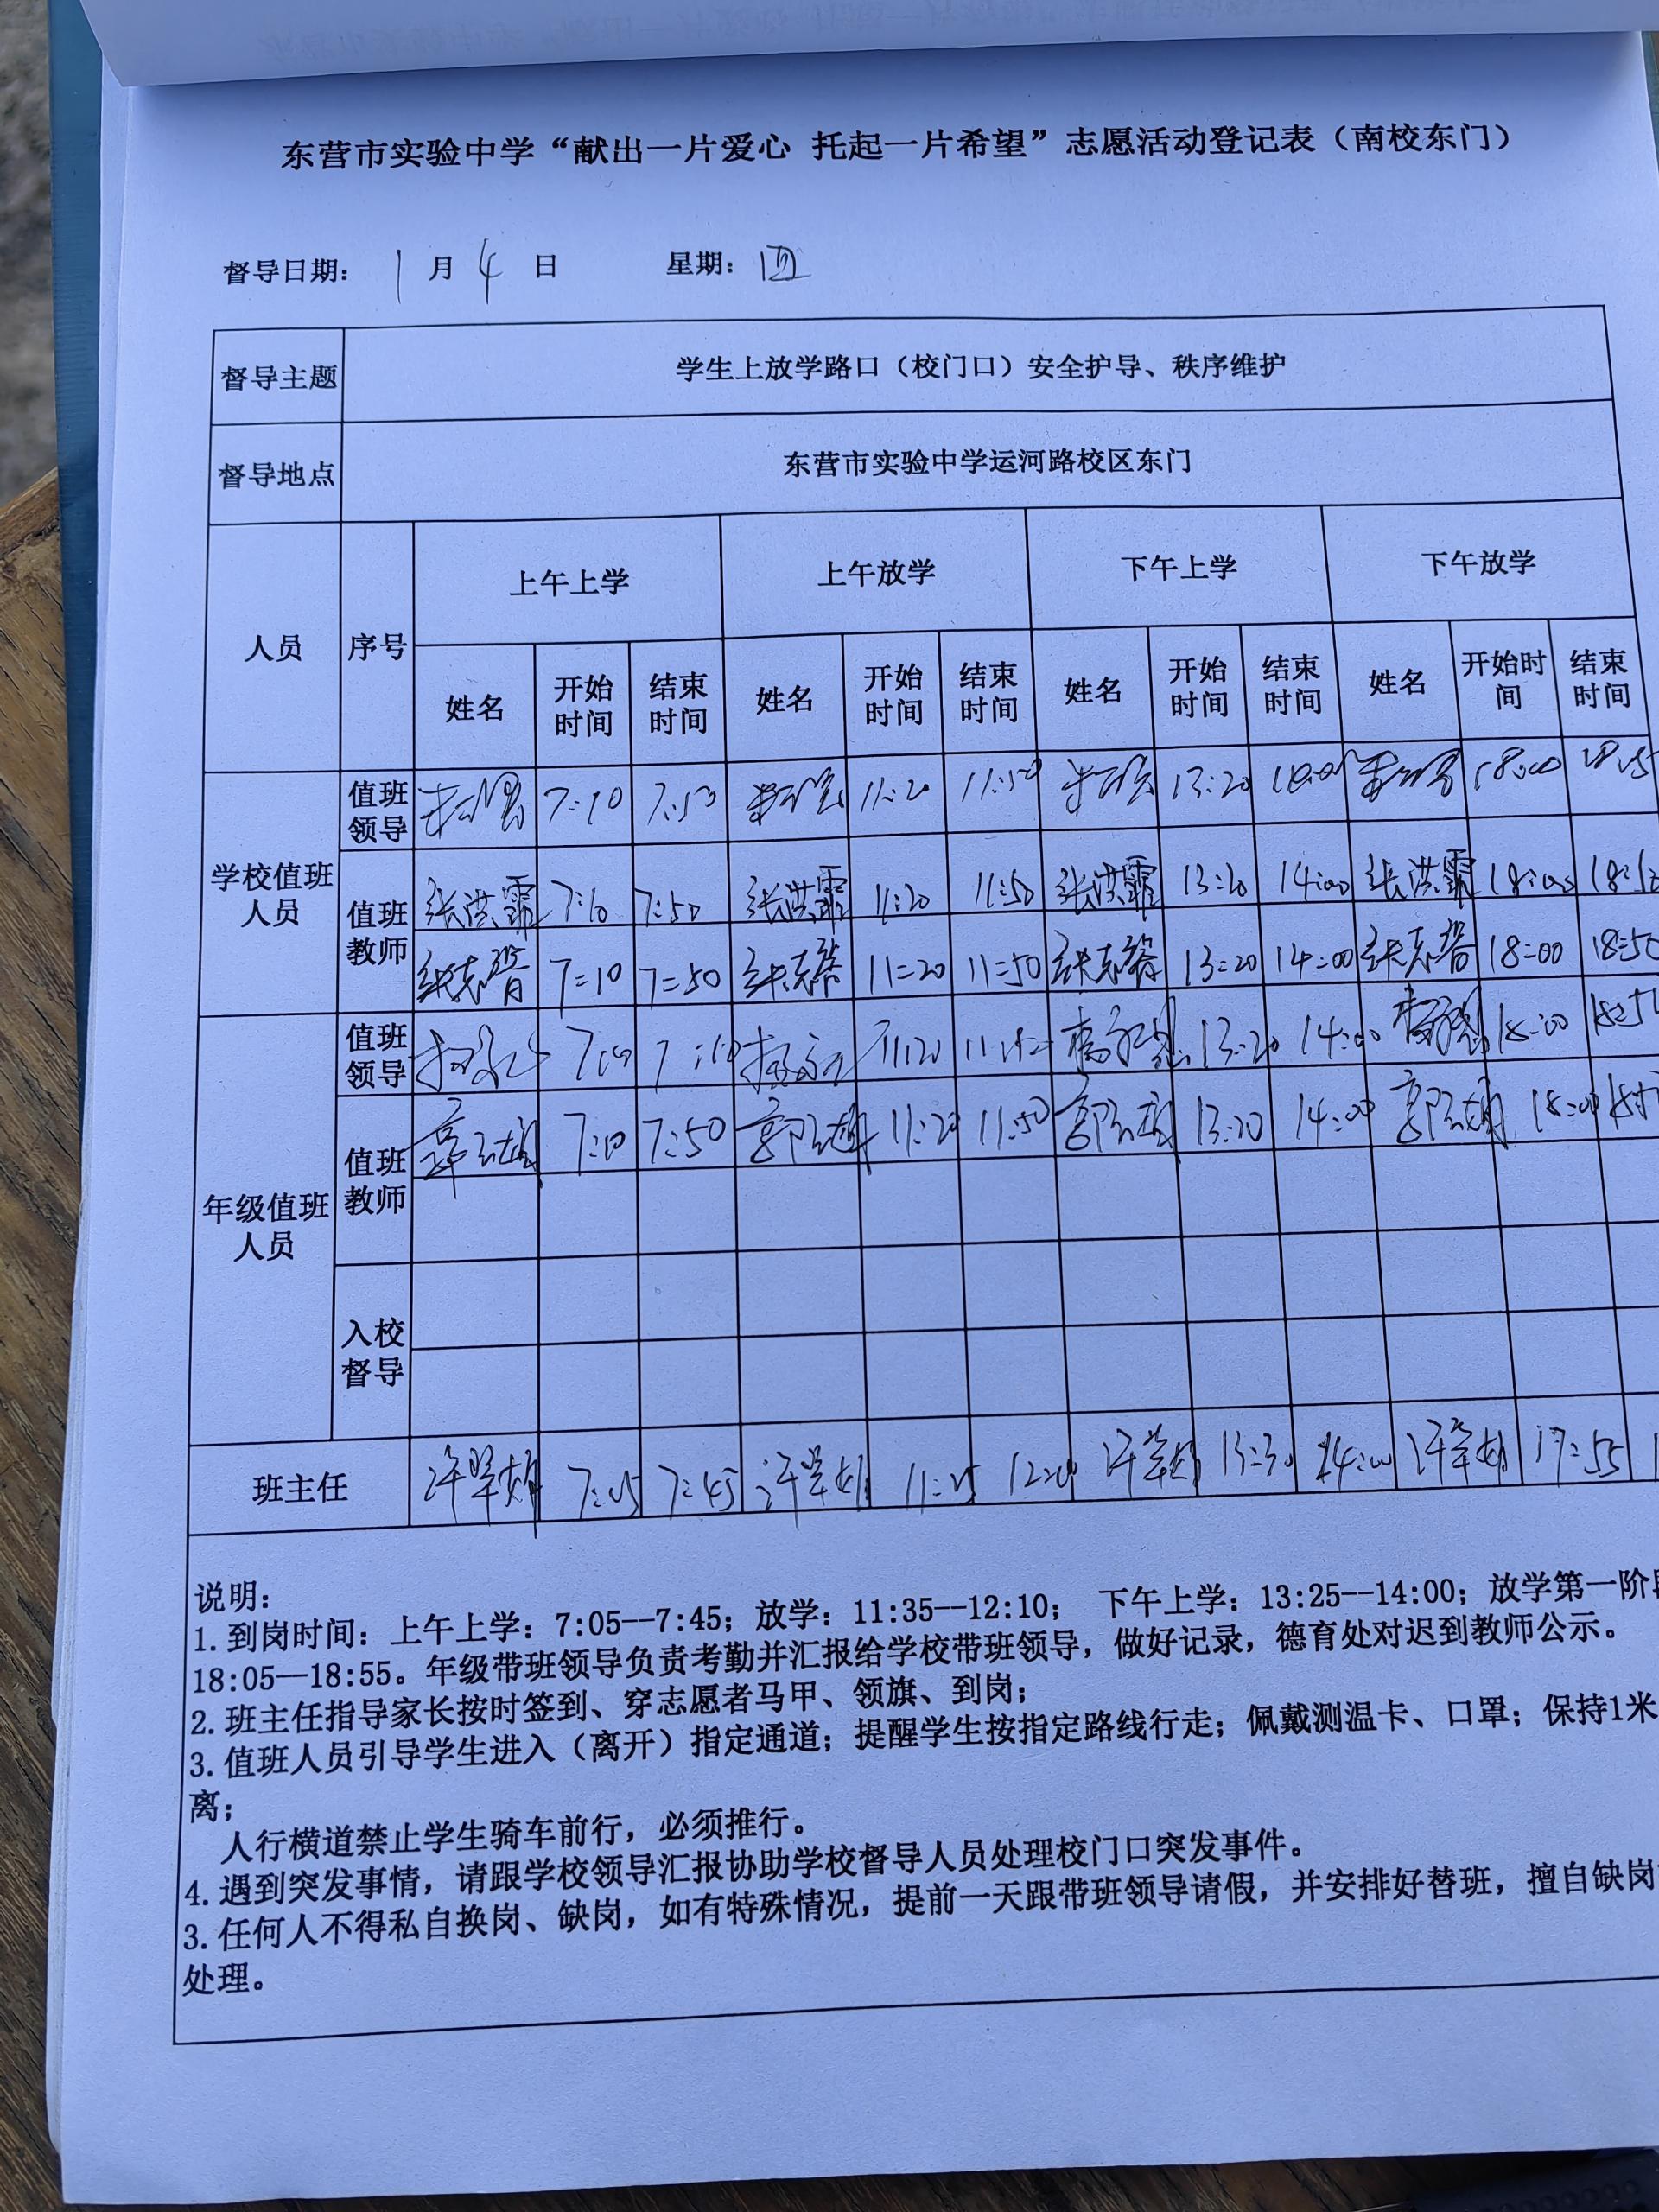 东营市实验中学“献出一片爱心 托起一片希望”志愿活动登记表（南校东门）
督导日期： 1 月 4 日 星期：四
督导主题 学生上放学路口（校门口）安全护导、秩序维护
督导地点 东营市实验中学运河路校区东门
人员 序号 上午上学 上午放学 下午上学 下午放学
姓名 开始时间 结束时间 姓名 开始时间 结束时间 姓名 开始时间 结束时间 姓名 开始时间 结束时间
学校值班人员 值班领导 7:10 7:50 11:20 11:50 13:20 18:00
值班教师 张洪霏 7:10 7:50 张洪霏 11:20 11:50 张洪霏 13:20 14:00 张洪霏 18:00
7=10 7=50 11=20 11=50 13=20 14=00 18=00 18=50
年级值班人员 值班领导 11:20 13:20 14:00 18:00
值班教师 7:10 7:50 11:20 11:50 13:20 14:00 18:00
入校督导
班主任 7:05 7:45 13:30 14:00 17:55
说明：
1.到岗时间：上午上学：7:05--7:45；放学：11:35--12:10； 下午上学：13:25--14:00；放学第一阶段
18:05—18:55。年级带班领导负责考勤并汇报给学校带班领导，做好记录，德育处对迟到教师公示。
2.班主任指导家长按时签到、穿志愿者马甲、领旗、到岗；
3.值班人员引导学生进入（离开）指定通道；提醒学生按指定路线行走；佩戴测温卡、口罩；保持1米
离；
人行横道禁止学生骑车前行，必须推行。
4.遇到突发事情，请跟学校领导汇报协助学校督导人员处理校门口突发事件。
3.任何人不得私自换岗、缺岗，如有特殊情况，提前一天跟带班领导请假，并安排好替班，擅自缺岗
处理。